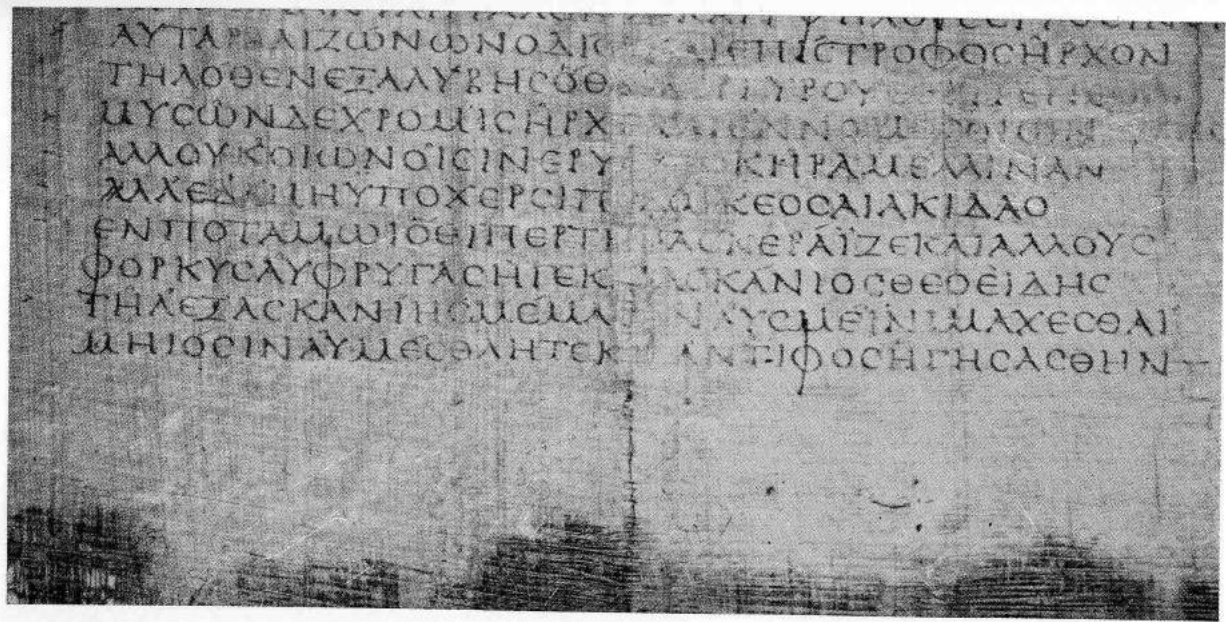 ΑΥΤΑΡΑΛΙΖΩΝΩΝΟΔΙΟϹΚΑΙΕΠΙϹΤΡΟΦΟϹΗΡΧΟΝ
ΤΗΛΟΘΕΝΕΞΑΛΥΒΗϹΟΘΕΝΑΡΓΥΡΟΥΕ
ΜΥϹΩΝΔΕΧΡΟΜΙϹΗΡΧΕΚΑΙΕΝΝΟΜΟϹΟΙΩΝ
ΑΛΛΟΥΚΟΙΩΝΟΙϹΙΝΕΡΥ ΚΗΡΑΜΕΛΑΙΝΑΝ
ΑΛΛΕΔΑΜΗΥΠΟΧΕΡϹΙΠΟΔΩΚΕΟϹΑΙΑΚΙΔΑΟ
ΕΝΠΟΤΑΜΩΙΟΘΕΙΠΕΡΤΡΩΑϹΚΕΡΑΪΖΕΚΑΙΑΛΛΟΥϹ
ΦΟΡΚΥϹΑΥΦΡΥΓΑϹΗΓΕΚΑΙΑϹΚΑΝΙΟϹΘΕΟΕΙΔΗϹ
ΤΗΛΕΞΑϹΚΑΝΙΗϹΜΕΜΑϹΑΝΔΥϹΜΕΙΝΙΜΑΧΕϹΘΑΙ
ΜΗΙΟϹΙΝΑΥΜΕϹΘΛΗΤΕΚΑΙΑΝΤΙΦΟϹΗΓΗϹΑϹΘΗΝ